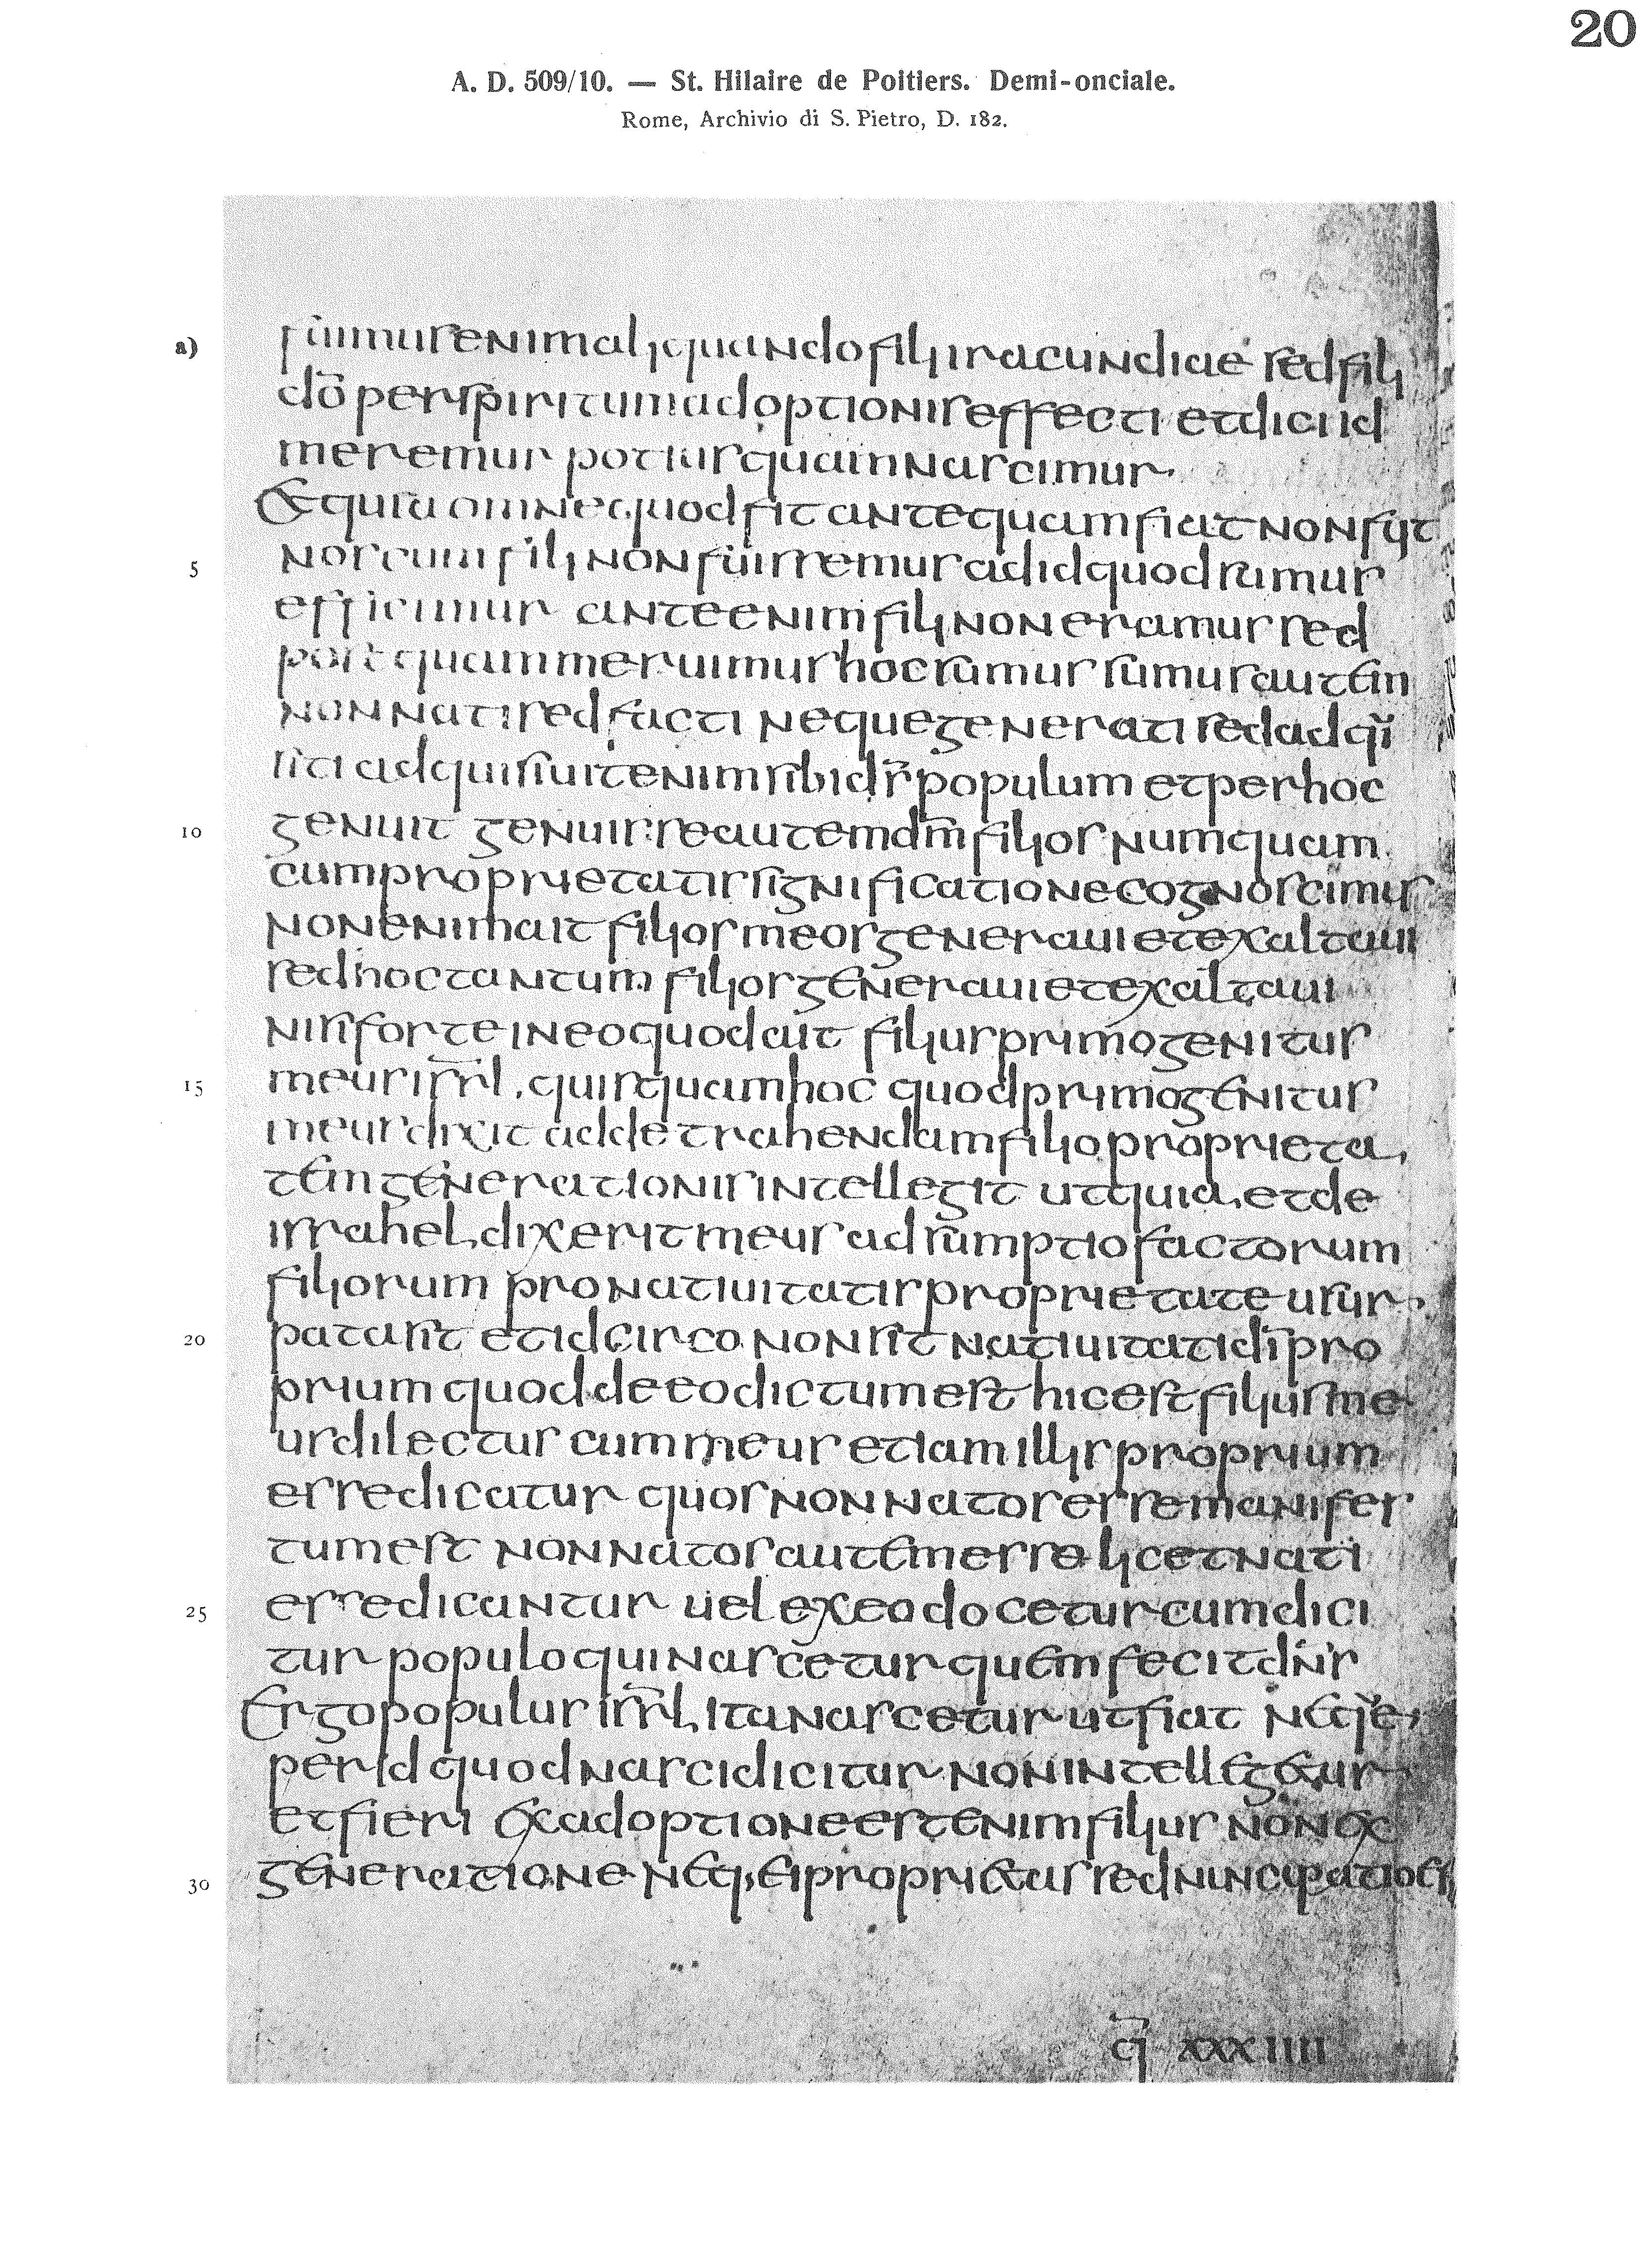 20
A. D. 509/10. — St. Hilaire de Poitiers. Demi-onciale.
Rome, Archivio di S. Pietro, D. 182.
a) fuimus enim aliquando filii iracundiae sed filii
dō per spiritum adoptionis effecti et dici id
meremur potius quam nascimur
Et quia omne quod fit antequam fiat non fuit
5 nos cum fili non fuissemus ad id quod sumus
efficimur ante enim fili non eramus sed
post quam meruimus hoc sumus sumus autem
non nati sed facti neque generati sed adqui
siti adquisiuit enim sibi ds̄ populum et per hoc
10 genuit genuisse autem dm̄ filios numquam
cum proprietatis significatione cognoscimus
non enim ait filios meos generaui et exaltaui
sed hoc tantum filios generaui et exaltaui
nisi forte in eo quod ait filius primogenitus
15 meus isrl̄. quisquam hoc quod primogenitus
meus dixit ad detrahendam filio proprieta
tem generationis intellegit ut quia et de
israhel dixerit meus adsumptio factorum
filiorum pro natiuitatis proprietate usur
20 pata sit et idcirco non sit natiuitati dī pro
prium quod de eo dictum est hic est filius me
us dilectus cum meus etiam illis proprium
esse dicatur quos non natos esse manifes
tum est non natos autem esse licet nati
25 esse dicantur uel ex eo docetur cum dici
tur populo qui nascetur quem fecit dn̄s
Ergo populus isrl̄ ita nascetur ut fiat neque
per id quod nasci dicitur non intellegetur
et fieri ex adoptione est enim filius non ex
30 generatione neq; ei proprietas sed nuncupatio est
q̄ XXXIIII